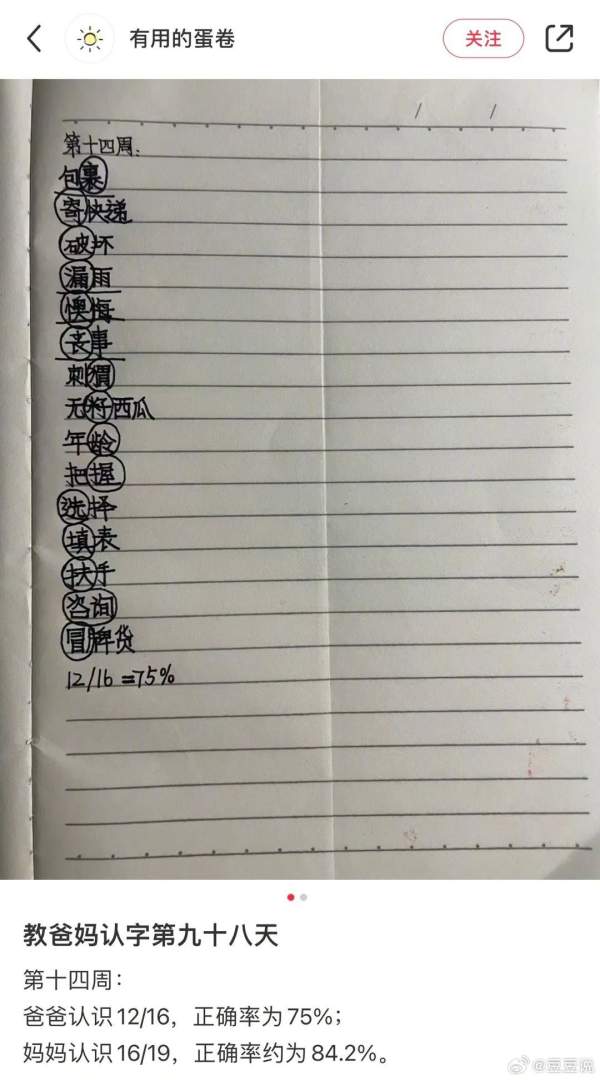 有用的蛋卷
关注
/ /
第十四周:
包裹
寄快递
破坏
漏雨
懊悔
丧事
刺猬
无籽西瓜
年龄
把握
选择
填表
扶手
咨询
冒牌货
12/16=75%
教爸妈认字第九十八天
第十四周：
爸爸认识12/16，正确率为75%；
妈妈认识16/19，正确率约为84.2%。
@豆豆说